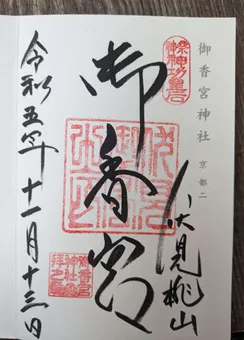 御香宮神社 京都二
伏見桃山
御香宮
令和五年十一月十三日